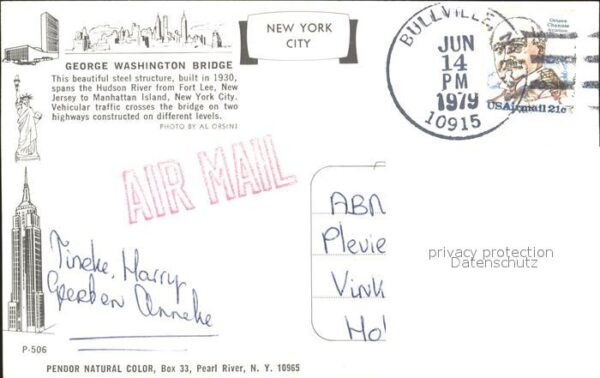 NEW YORK
CITY
GEORGE WASHINGTON BRIDGE
This beautiful steel structure, built in 1930,
spans the Hudson River from Fort Lee, New
Jersey to Manhattan Island, New York City.
Vehicular traffic crosses the bridge on two
highways constructed on different levels.
PHOTO BY AL ORSINI
BULLVILLE, N
JUN
14
PM
1979
10915
Octave
Chanute
USAirmail 21c
AIR MAIL
Tineke, Harry
Gerben Anneke
ABN
Plevie
Vink
Hol
privacy protection
Datenschutz
P-506
PENDOR NATURAL COLOR, Box 33, Pearl River, N. Y. 10965